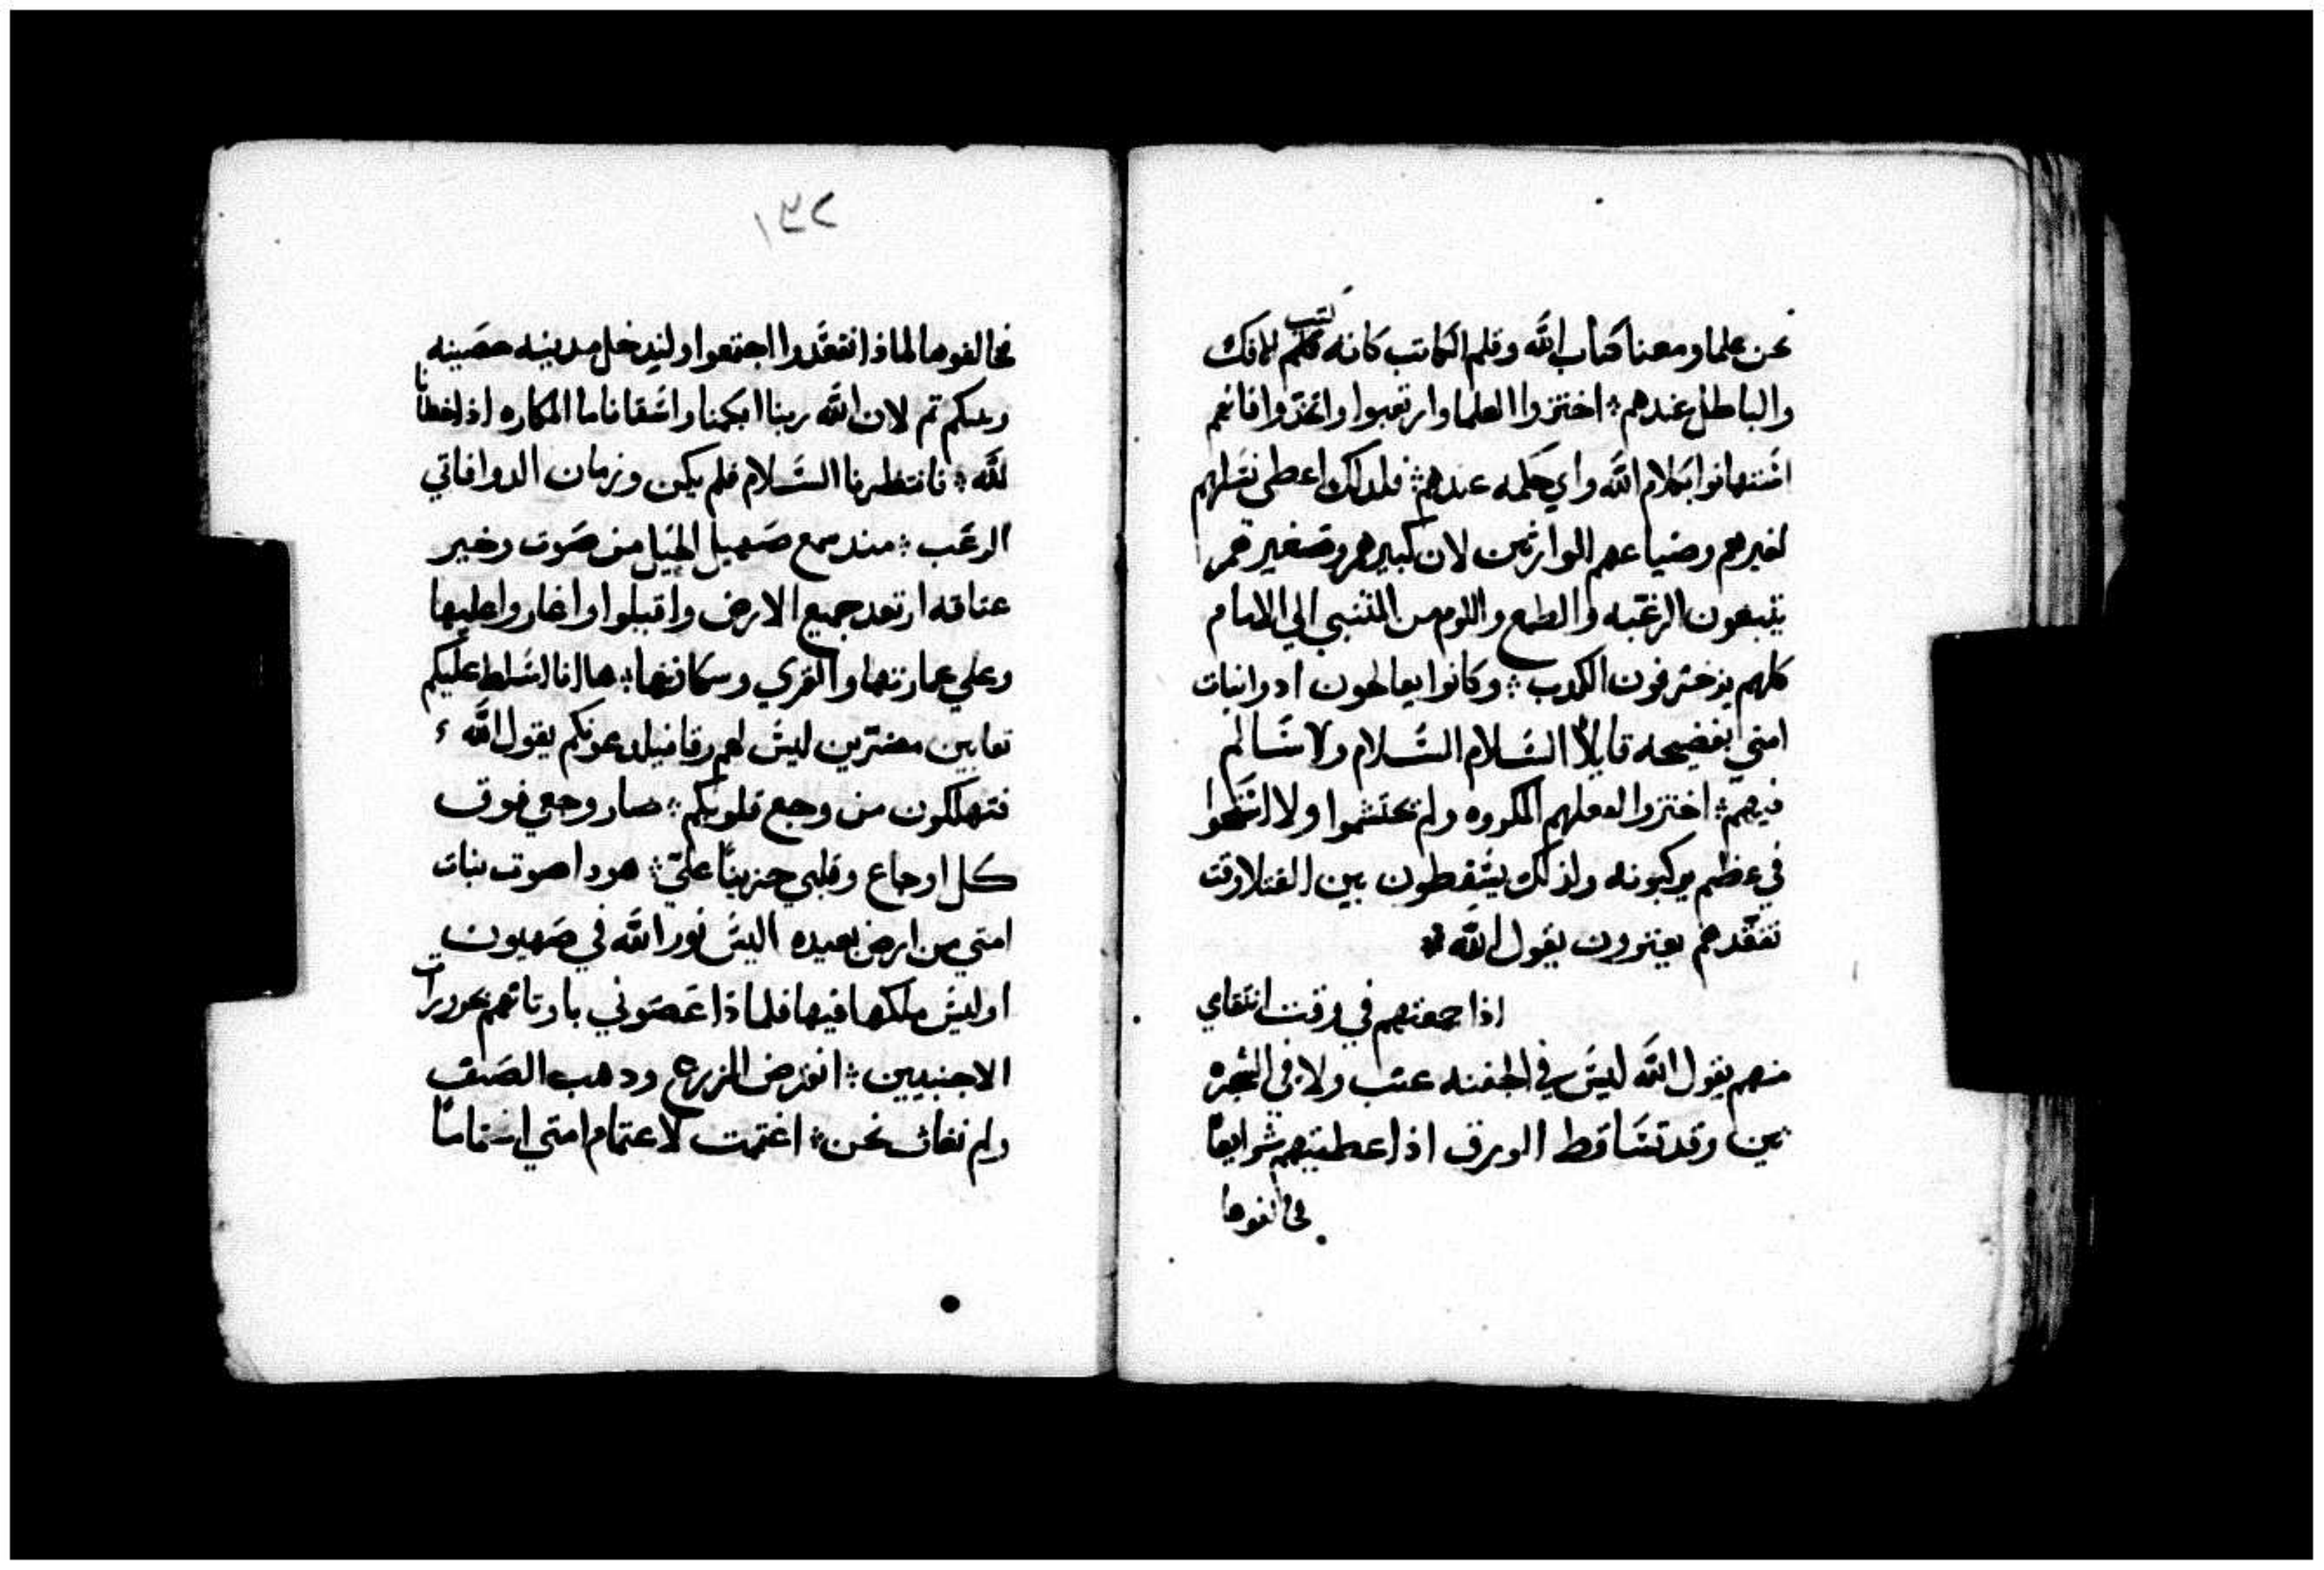 نحن علما ومعنا كتاب الله وقلم الكاتب كانه كتب للافك
والباطل عندهم اختزوا العلما وارتعبوا واتخذوا فانهم
اشتهانوا بكلام الله واي حكمه عندهم فلدلك اعطى نشلهم
لغيرهم وضياعهم للوارثين لان كبيرهم وصغيرهم
يتبعون الرغبه والطمع واللوم من المتنبي الي الامام
كلهم يزخرفون الكدب وكانوا يعالجون ادوا نبات
امتي بفضيحه قايلاً الشلام الشلام ولا شالم
فيهم اختزوا لفعلهم المكروه ولم يحتشموا ولا
في عظم يركبونه ولذلك يشقطون بين القتلا وقت
تفقدهم يعثرون يقول الله
اذا جمعتهم في وقت انتقاي
منهم يقول الله ليش في الجفنه عنب ولا في الشجره
تين وقد تشاقط الورق اذا اعطيتهم شرايعاً
فخالفوها
١٣٢
فخالفوها لماذا نتفقدوا اجتمعوا ولندخل مدينه حصينه
ونبكم تم لان الله ربنا ابكمنا واشقانا ما المكاره اذ اخطانا
لله فانتظرنا الشلام فلم يكن وزمان الدوا فاتي
الرعب مند سمع صهيل الخيل من صوت وخير
عتاقه ارتعد جميع الارض واقبلوا واغاروا عليها
وعلي عمارتها والقري وسكانها ها انا اشلط عليكم
تعابين مفترين ليش لهم رقا فيلدعونكم يقول الله
فتهلكون من وجع قلوبكم صار وجعي فوق
كل اوجاع وقلبي حزيناً علي هودا صوت بنات
امتي من ارض بعيده اليش نور الله في صهيون
اوليش ملكها فيها فلماذا عصوني باوتانهم
الاجنبيين انقرض الزرع ودهب الصيف
ولم نغاث نحن اغتممت لاغتمام امتي